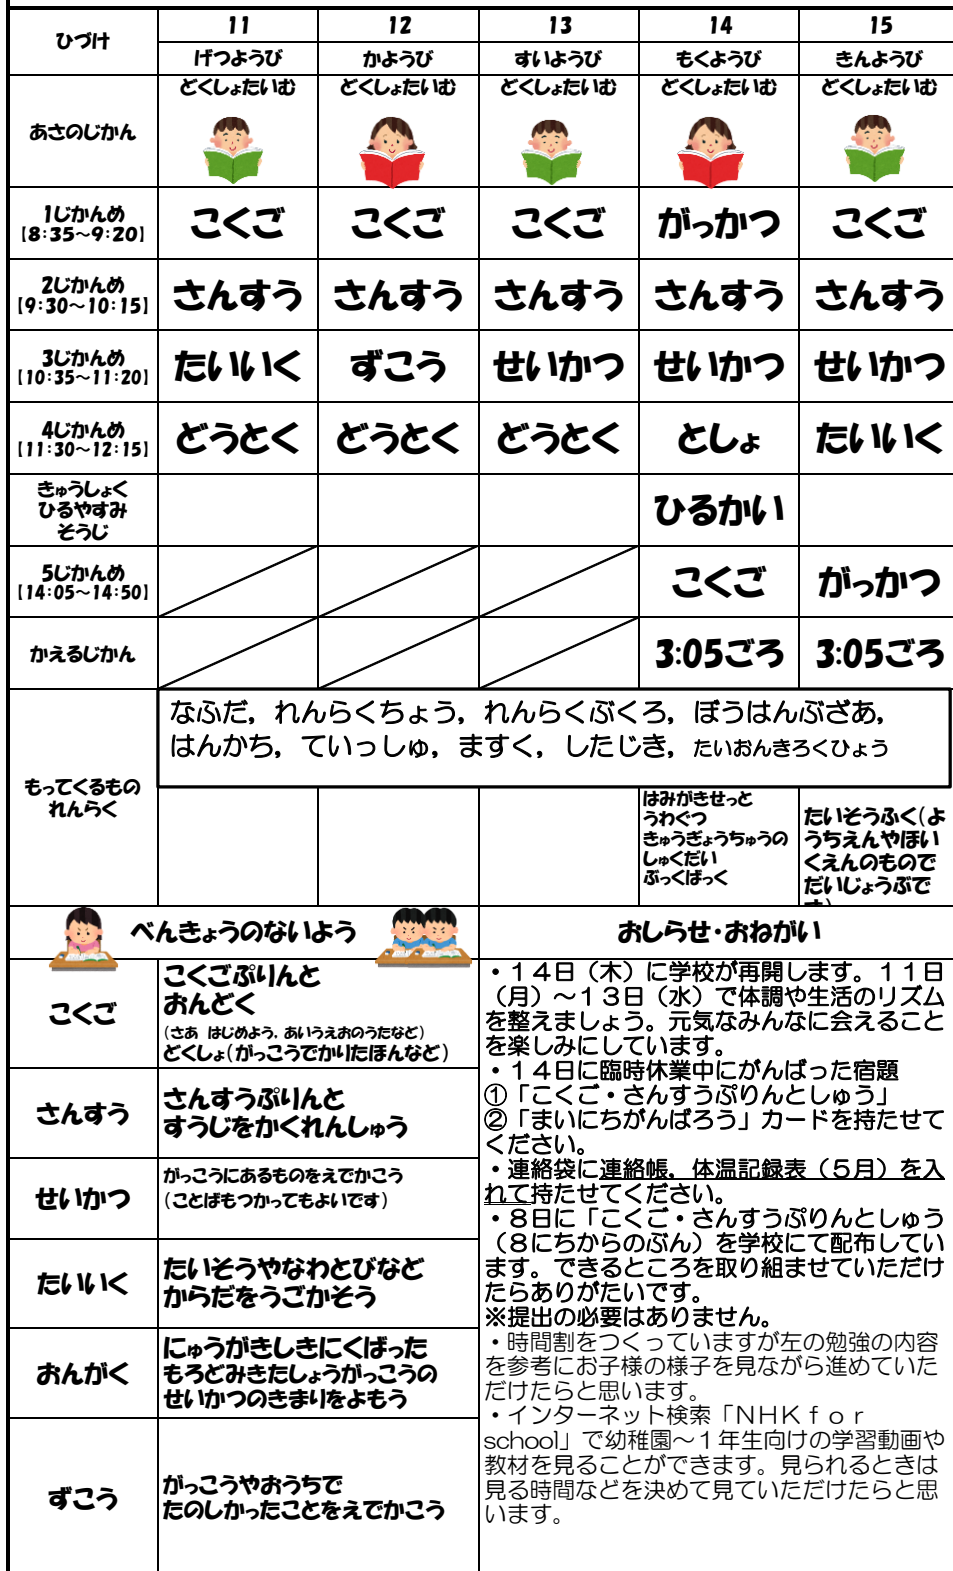 ひづけ 11 12 13 14 15
げつようび かようび すいようび もくようび きんようび
あさのじかん どくしょたいむ どくしょたいむ どくしょたいむ どくしょたいむ どくしょたいむ
1じかんめ こくご こくご こくご がっかつ こくご
【8:35～9:20】
2じかんめ さんすう さんすう さんすう さんすう さんすう
【9:30～10:15】
3じかんめ たいいく ずこう せいかつ せいかつ せいかつ
【10:35～11:20】
4じかんめ どうとく どうとく どうとく としょ たいいく
【11:30～12:15】
きゅうしょく
ひるやすみ ひるかい
そうじ
5じかんめ こくご がっかつ
【14:05～14:50】
かえるじかん 3:05ごろ 3:05ごろ
もってくるもの
れんらく
なふだ，れんらくちょう，れんらくぶくろ，ぼうはんぶざあ，
はんかち，ていっしゅ，ますく，したじき，たいおんきろくひょう
はみがきせっと
うわぐつ
きゅうぎょうちゅうの
しゅくだい
ぶっくばっく
たいそうふく(よ
うちえんやほい
くえんのもので
だいじょうぶで
す)
べんきょうのないよう
こくご
こくごぷりんと
おんどく
(さあ はじめよう，あいうえおのうたなど)
どくしょ(がっこうでかりたほんなど)
さんすう
さんすうぷりんと
すうじをかくれんしゅう
せいかつ
がっこうにあるものをえでかこう
(ことばもつかってもよいです)
たいいく
たいそうやなわとびなど
からだをうごかそう
おんがく
にゅうがきしきにくばった
もろどみきたしょうがっこうの
せいかつのきまりをよもう
ずこう
がっこうやおうちで
たのしかったことをえでかこう
おしらせ・おねがい
・１４日（木）に学校が再開します。１１日
（月）～１３日（水）で体調や生活のリズム
を整えましょう。元気なみんなに会えること
を楽しみにしています。
・１４日に臨時休業中にがんばった宿題
①「こくご・さんすうぷりんとしゅう」
②「まいにちがんばろう」カードを持たせて
ください。
・連絡袋に連絡帳，体温記録表（５月）を入
れて持たせてください。
・８日に「こくご・さんすうぷりんとしゅう
（８にちからのぶん）を学校にて配布してい
ます。できるところを取り組ませていただけ
たらありがたいです。
※提出の必要はありません。
・時間割をつくっていますが左の勉強の内容
を参考にお子様の様子を見ながら進めていた
だけたらと思います。
・インターネット検索「ＮＨＫｆｏｒ
school」で幼稚園～１年生向けの学習動画や
教材を見ることができます。見られるときは
見る時間などを決めて見ていただけたらと思
います。